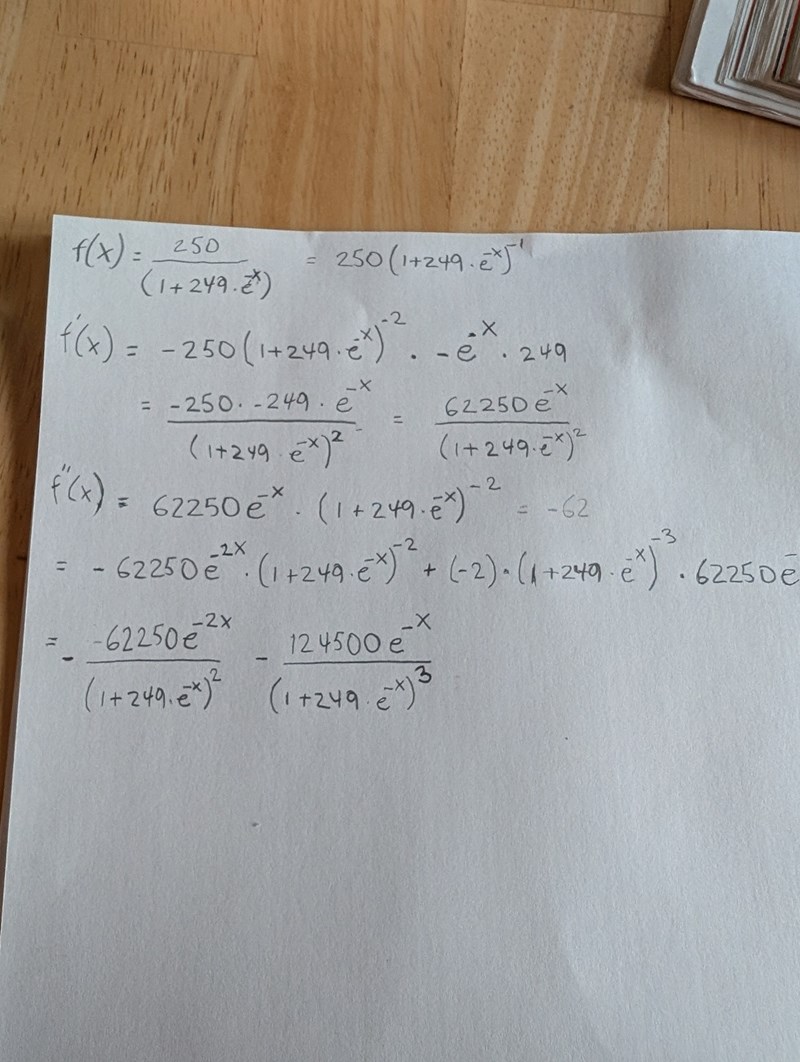 f(x) = 250 / (1+249·e^-x) = 250(1+249·e^-x)^-1
f'(x) = -250(1+249·e^-x)^-2 · -e^-x · 249
= -250·-249·e^-x / (1+249·e^-x)^2 = 62250e^-x / (1+249·e^-x)^2
f''(x) = 62250e^-x · (1+249·e^-x)^-2 = -62
= -62250e^-2x · (1+249·e^-x)^-2 + (-2)·(1+249·e^-x)^-3 · 62250e^-
= - -62250e^-2x / (1+249·e^-x)^2 - 124500e^-x / (1+249·e^-x)^3